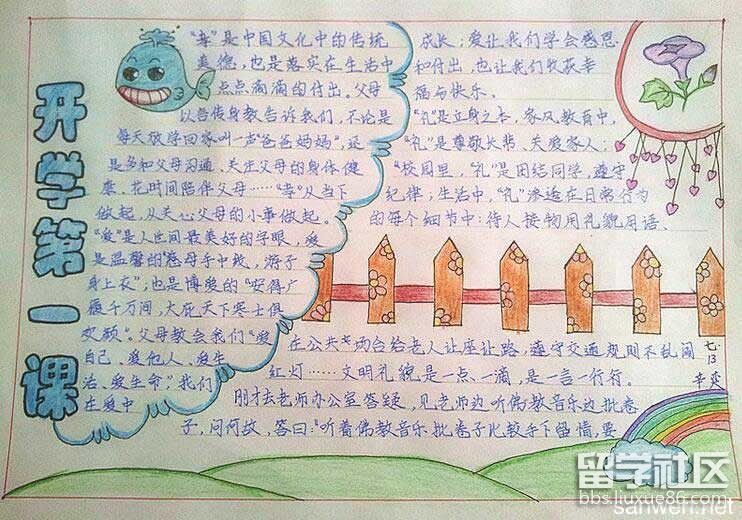 开学第一课
“孝”是中国文化中的传统
美德,也是落实在生活中
点点滴滴的付出。父母
以言传身教告诉我们,不论是
每天放学回家叫一声“爸爸妈妈”,还
是多和父母沟通、关注父母的身体健
康、花时间陪伴父母……“孝”从当下
做起,从关心父母的小事做起。
“爱”是人世间最美好的字眼,爱
是温馨的“慈母手中线,游子
身上衣”,也是博爱的“安得广
厦千万间,大庇天下寒士俱
欢颜”。父母教会我们“爱
自己、爱他人、爱生
活、爱生命”,我们
在爱中
成长;爱让我们学会感恩
和付出,也让我们收获幸
福与快乐。
“礼”是立身之本,家风教育中,
“礼”是尊敬长辈、关爱家人;
“校园里,“礼”是团结同学,遵守
纪律;生活中,“礼”渗透在日常行为
的每个细节中:待人接物用礼貌用语、
在公共场合给老人让座让路,遵守交通规则不乱闯
红灯……文明礼貌是一点一滴,是一言一行行。
刚才去老师办公室答疑,见老师边听佛教音乐边批卷
子,问何故,答曰:“听着佛教音乐批卷子比较手下留情,要
七.13
留学社区
bbs.liuxue86.com
sanwen.net